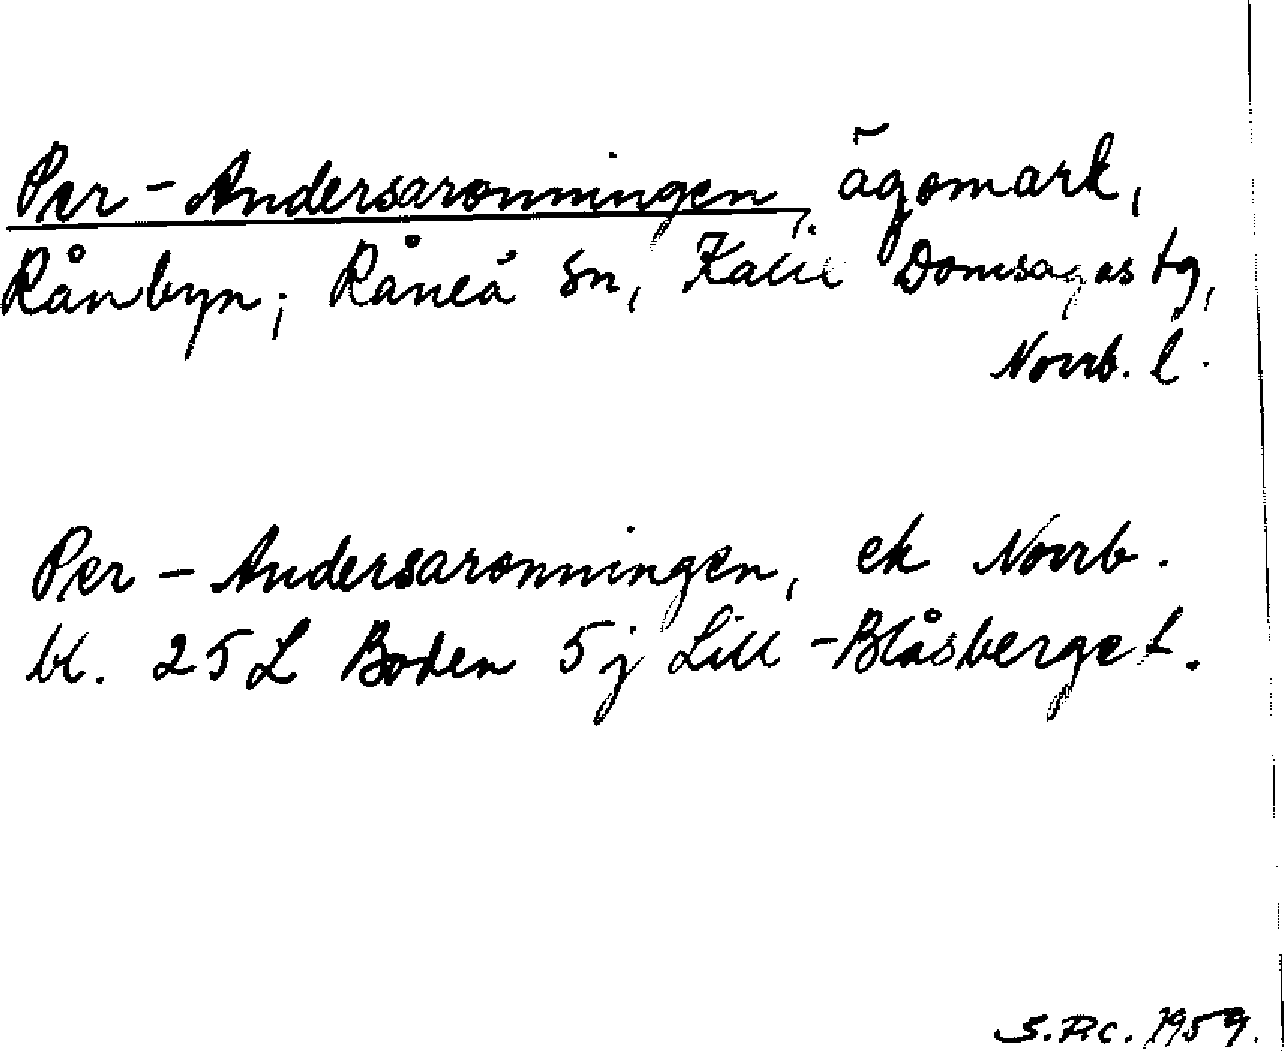 Per-Andersaronningen, ägomark,
Rånbyn; Råneå sn, Kalix Domsagas tg,
Norrb. l.
Per-Andersaronningen, ek Norrb.
bl. 25 L Boden 5j Lill-Blåsberget.
1959.